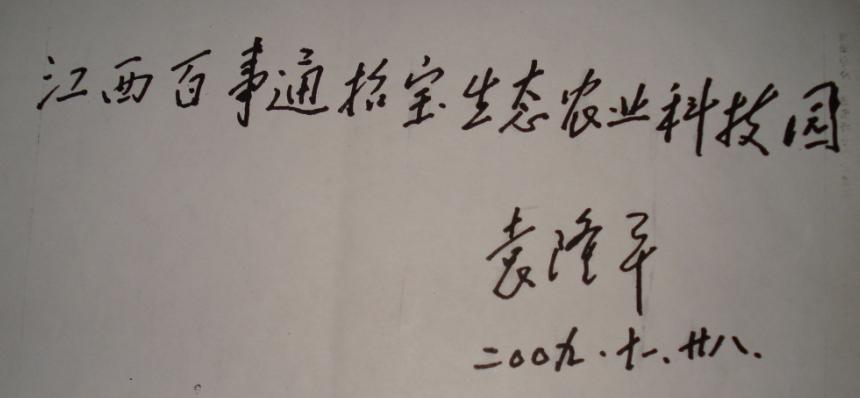 江西百事通招宝生态农业科技园
袁隆平
二00九.十一.廿八.